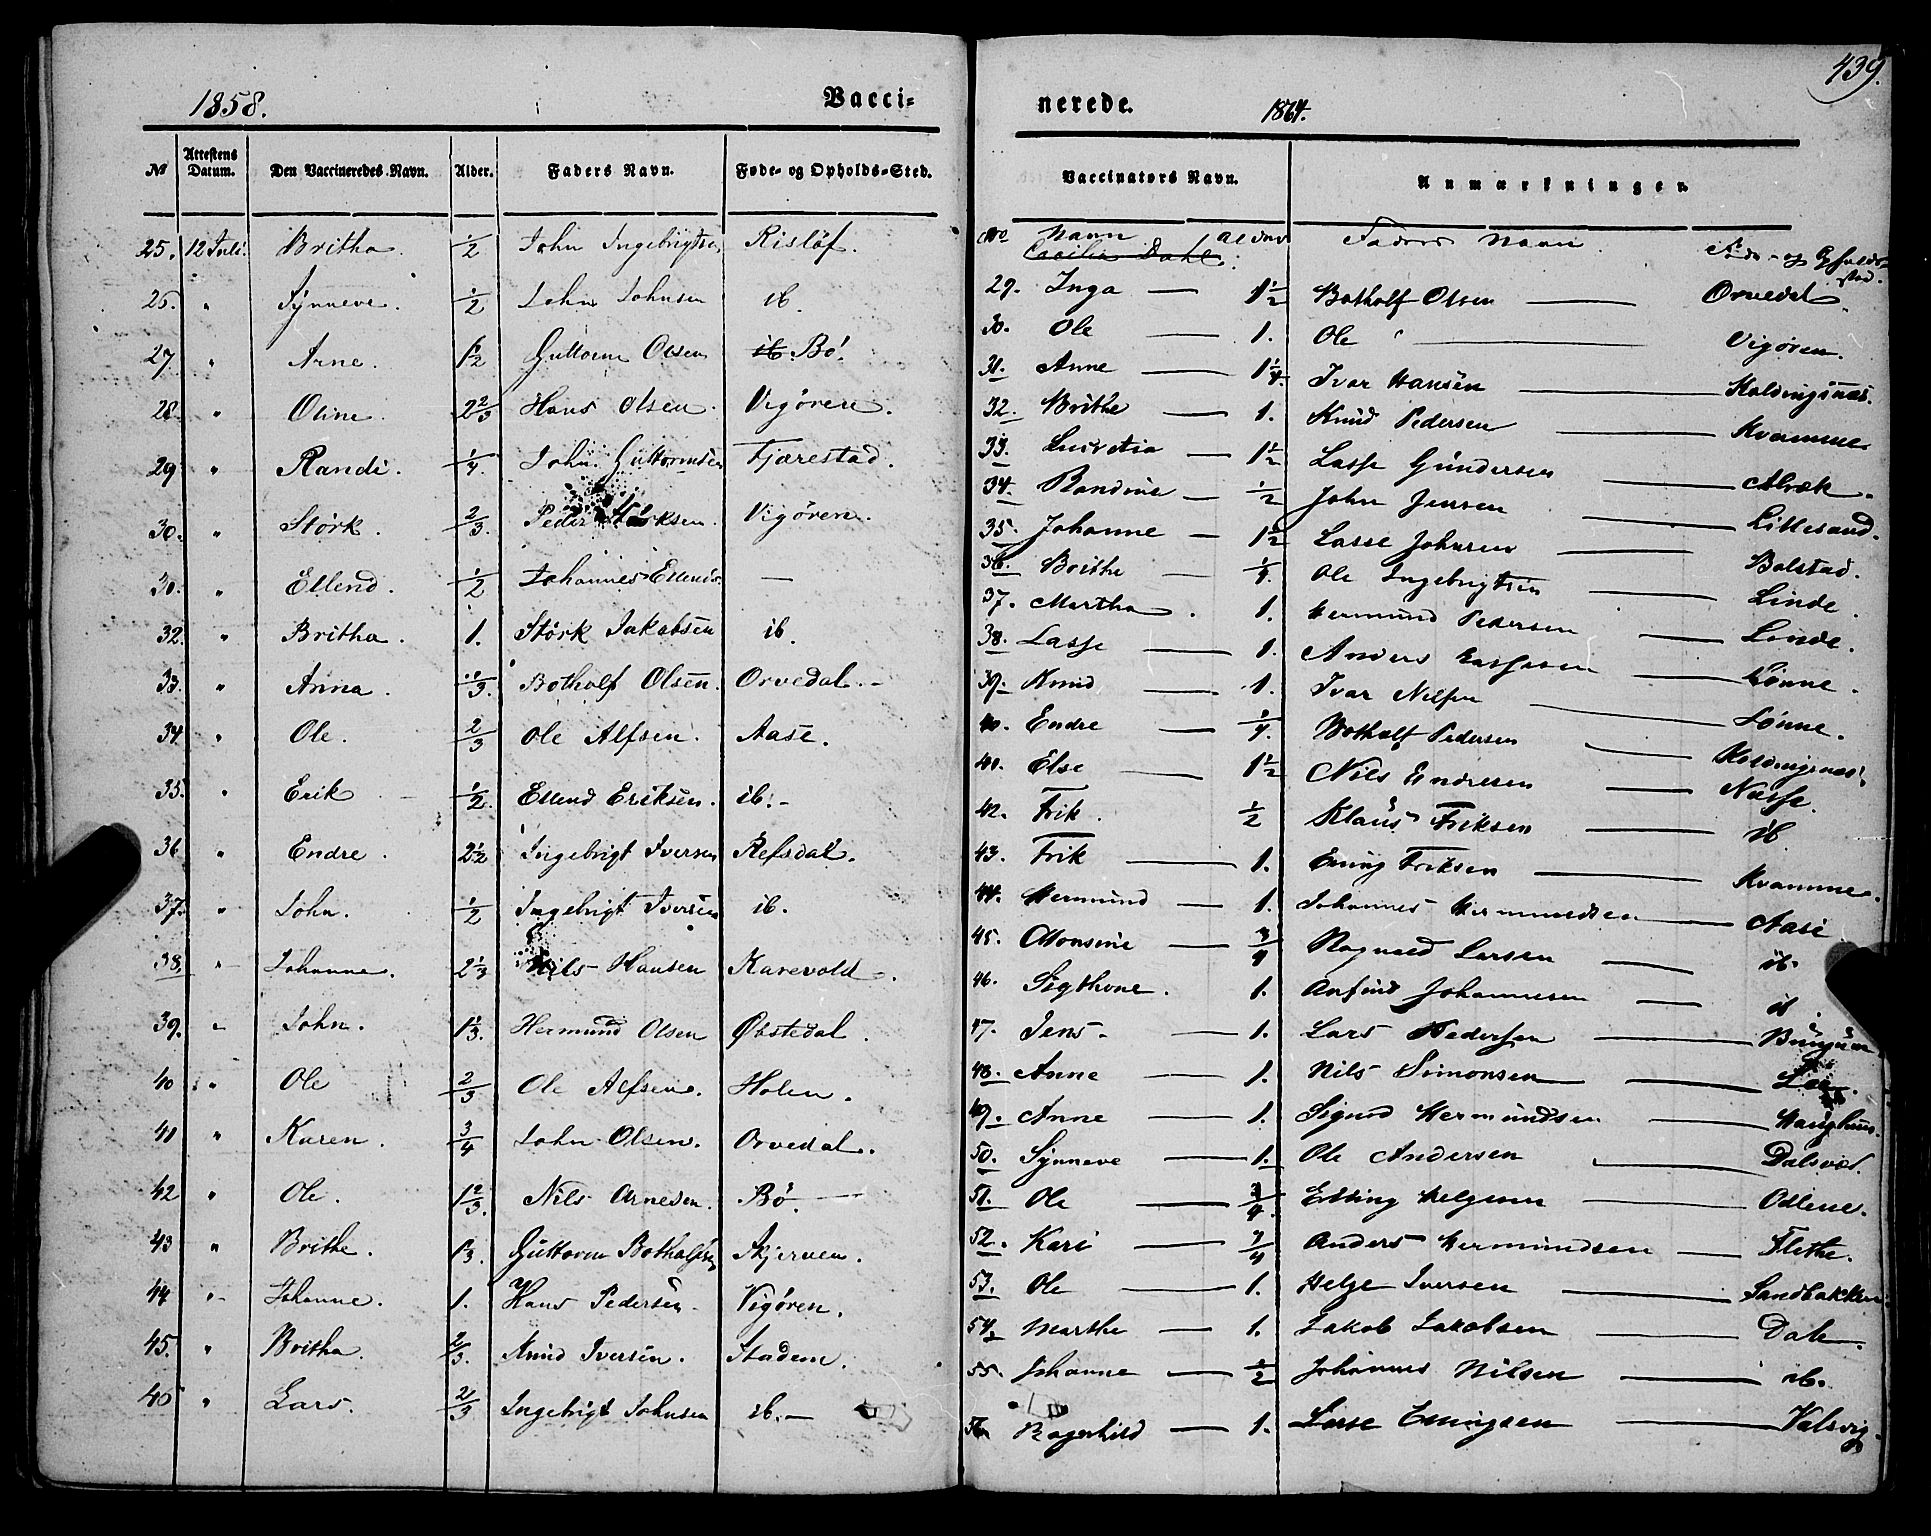 439.
1858. Vacci-
№ Attestens Datum. Den Vaccineredes Navn. Alder. Faders Navn. Føde- og Opholds-Sted.
25. 12 Juli. Britha. 1/2 John Ingebrigtsen Risløf.
26. " Synneve. 1/2 John Johnsen ib.
27 " Arne. 1 1/2 Guttorm Olsen ib. Bø.
28. " Oline. 2 2/3 Hans Olsen. Vigøren.
29 " Randi. 1/4. John Guttormsen Fjærestad.
30. " Størk. 2/3. Peder Størksen. Vigøren.
30. " Ellend. 1/2 Johannes Ellends. —
32. " Britha. 1. Størk Jakobsen ib.
33. " Anna. 1/3. Botholf Olsen. Orvedal.-
34 " Ole. 2/3 Ole Alfsen. Aase.
35. " Erik 1/2. Ellend Eriksen. ib.-
36 " Endre. 2 1/2 Ingebrigt Iversen Refsdal.
37. " John. 1/2 Ingebrigt Iversen ib.
38. " Johanne. 2 1/3 Nils Hansen Karevold.
39. " John. 1 1/3. Hermund Olsen Øbstedal.
40 " Ole 2/3 Ole Alfsen. Holen.
41 " Karen. 3/4 John Olsen. Orvedal.
42 " Ole. 1 2/3. Nils Arnesen. Bø. —
43 " Brithe. 1 1/3. Guttorm Botholfsen Skjerven.
44 " Johanne. 1. Hans Pedersen Vigøren.
45. " Britha. 2/3. Knud Iversen. Stadem.
46 " Lars. 2/3 Ingebrigt Johnsen ib.-
nerede. 1864.
Vaccinatørs Navn. Anmærkninger.
No Navn Alder Faders Navn Føde- og Opholds-
Cecilie Dahl. sted.
29. Inga — 1 1/2 Botholf Olsen — Orvedal.
30. Ole — 1. Ole — Vigøren.
31. Anne — 1 1/4. Ivar Hansen — Holdingsnæs.
32. Brithe — 1. Knud Pedersen — Kvamme
33. Lucretia — 1 1/2 Lasse Gundersen —
34. Randine — 1/2 John Jensen — Littesand.
35. Johanne — 1 1/2 Lasse Johnsen — Bolstad.
36. Brithe — 1/4. Ole Ingebrigtsen — Linde.
37. Martha. 1. Hermund Pedersen — Linde.
38. Lasse — 1. Anders Lassesen — Lønne.
39. Knud — 1. Ivar Nilsen — Lønne.
40. Endre — 1/4. Botholf Pedersen — Holdingsnæs.
41. Else — 1 1/2 Nils Endresen — Næsse.
42. Erik. 1/2 Klaus Eriksen — ib.
43. Erik — 1. Eming Eriksen — Kvamme.
44. Hermund — 1. Johannes Hermundsen — Aase
45. Monsine — 3/4 Ragnald Larsen — ib.
46. Sigthone. 1. Anfind Johannesen — ib.
47. Jens — 1. Lars Pedersen —
48. Anne — 1. Nils Simonsen —
49. Anne — 1. Sigurd Hermundsen — Haughuus.
50. Synneve — 1. Ole Andersen —
51. Ole — 3/4. Erling Helgesen —
52. Kari — 3/4 Anders Hermundsen — Flethe.
53. Ole — 1. Helge Iversen — Sandbakken
54. Marthe — 1. Jakob Jakobsen — Dale
55. Johanne — 1/2 Johannes Nilsen — ib.
56. Ragnhild — 1. Lasse Emingsen — Valsvig